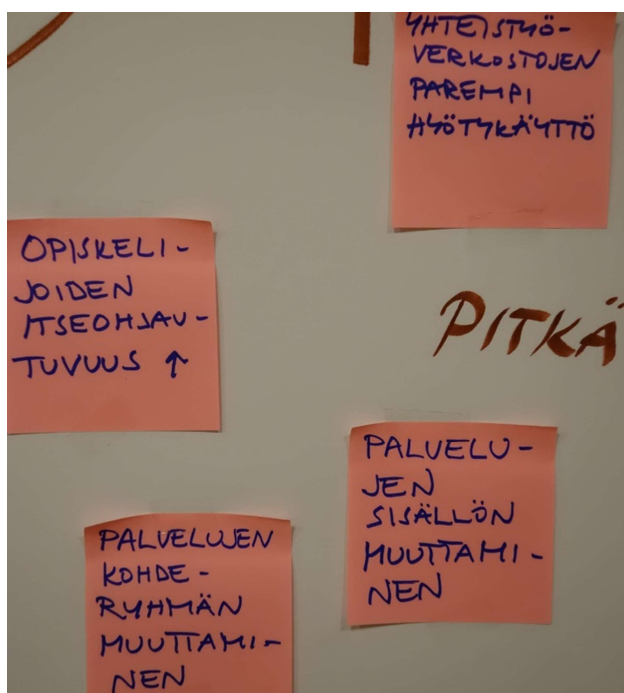 YHTEISTYÖ-
VERKOSTOJEN
PAREMPI
HYÖTYKÄYTTÖ
OPISKELI-
JOIDEN
ITSEOHJAU-
TUVUUS ↑
PITKÄ
PALVELU-
JEN
SISÄLLÖN
MUUTTAMI-
NEN
PALVELUJEN
KOHDE-
RYHMÄN
MUUTTAMI-
NEN